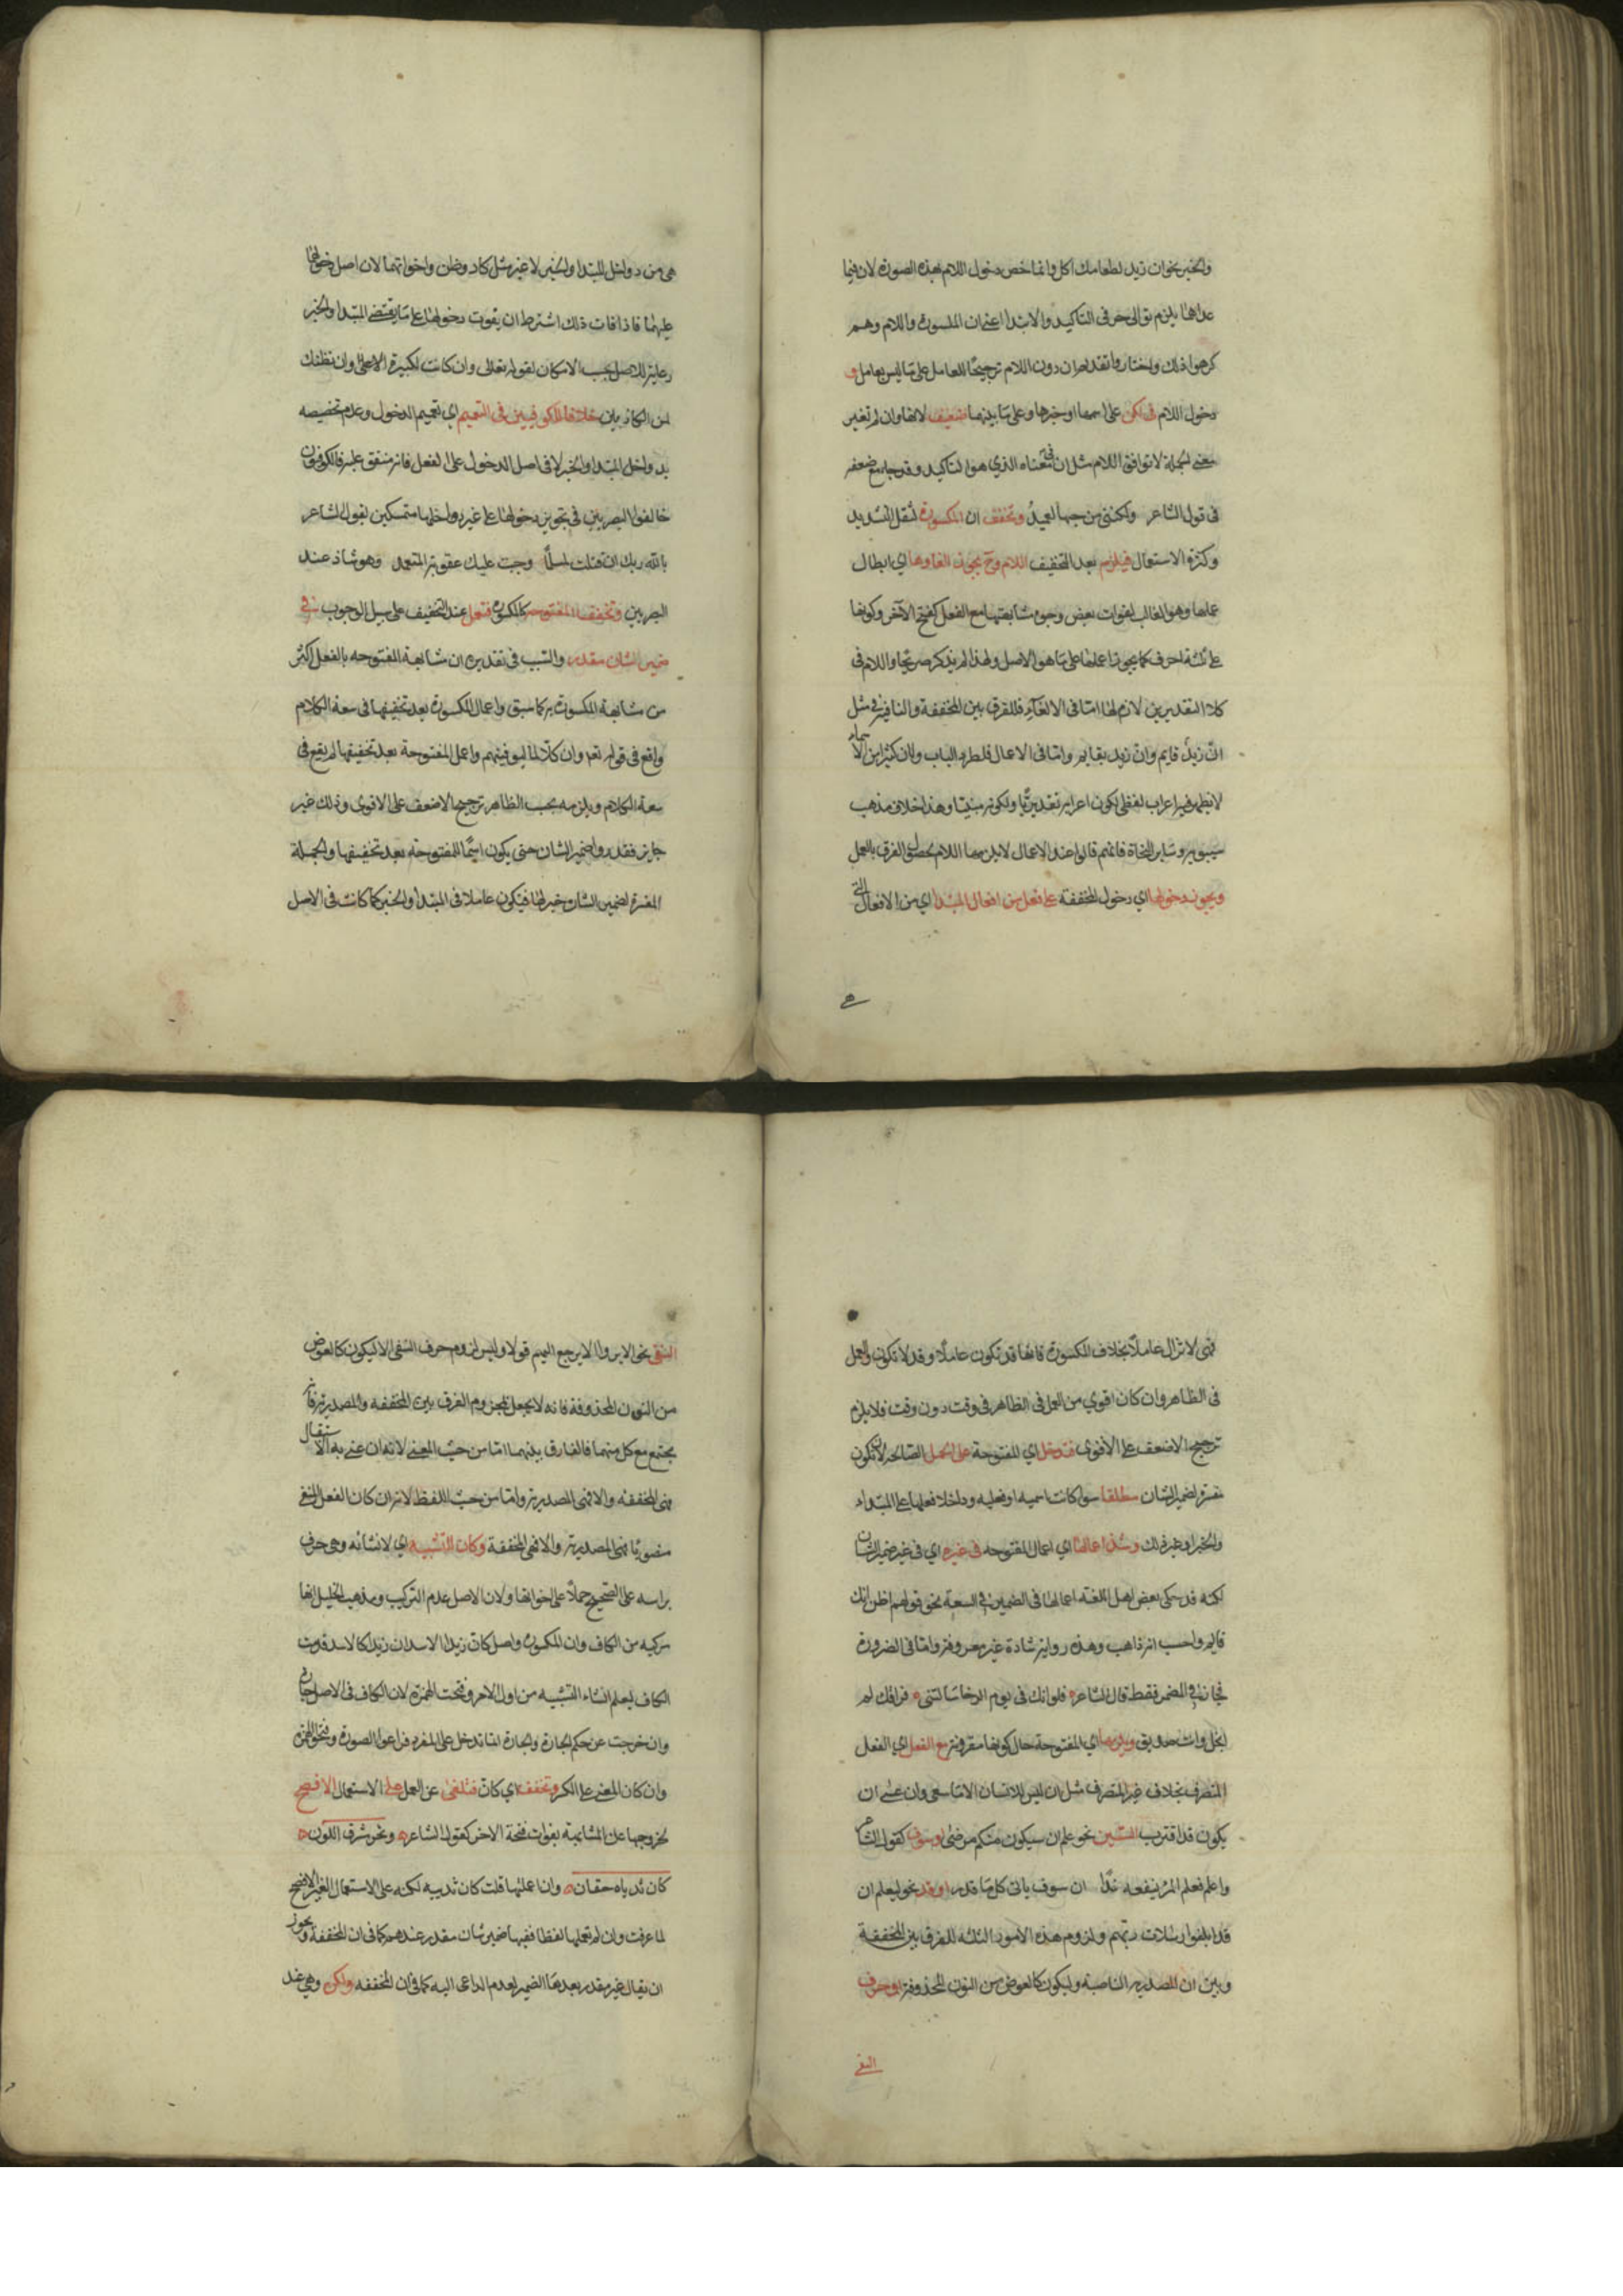 والخبر نحو ان زيد لطعامك اكل وانما خص دخول اللام بهذه الصورة لان فيما
عداها يلزم توالى حرفى التاكيد والابتدا اعنى ان المكسورة واللام وهم
كرهوا ذلك واختاروا تقديم ان دون اللام ترجيحا للعامل على ما ليس بعامل و
دخول اللام فى لكن على اسمها او خبرها وعلى ما بينهما ضعيف لانها وان لم تغير
معنى الجملة لا توافق اللام مثل ان فى معناه الذي هو التاكيد وقد جا مع ضعفه
فى قول الشاعر ولكننى من حبها لعميد وتخفف ان المكسورة لثقل التشديد
وكثرة الاستعمال فيلزم بعد التخفيف اللام وح يجوز الغاوها اي ابطال
عملها وهو الغالب لفوات بعض وجوه مشابهتها مع الفعل كفتح الآخر وكونها
على ثلثة احرف كما يجوز اعمالها على ما هو الاصل ولهذا لم يذكر صريحا واللام فى
كلا التقديرين لازم لها اما فى الالغآء فللفرق بين المخففة والنافية فى مثل
ان زيد قايم وان زيد بقايم واما فى الاعمال فلطرد الباب ولان كثيرا من الاسماء
لا يظهر فيه اعراب لفظى لكون اعرابه تقديريا ولكونه مبنيا وهذا خلاف مذهب
سيبويه وسائر النحاة فانهم قالوا عند الاعمال لا يلزمها اللام لحصول الفرق بالعمل
ويجوز دخولها اي دخول المخففة على فعل من افعال المبتدا اي من الافعال التى
هى
هى من دواخل المبتدا والخبر لا غير مثل كاد وظن واخواتهما لان اصل دخولها
عليهما فاذا فات ذلك اشترط ان يفوت دخولها على ما يقتضى المبتدا والخبر
رعاية للاصل بحسب الامكان لقوله تعالى وان كانت لكبيرة الا على وان نظنك
لمن الكاذبين خلافا للكوفيين فى التعميم اي تعميم الدخول وعدم تخصيصه
بدواخل المبتدا والخبر لا فى اصل الدخول على الفعل فانه متفق عليه فالكوفيون
خالفوا البصريين فى تجويز دخولها على غير دواخلهما متمسكين بقول الشاعر
بالله ربك ان قتلت لمسلما وجبت عليك عقوبة المتعمد وهو شاذ عند
البصريين وتخفف المفتوحة كالمكسورة فتعمل عند التخفيف على سبيل الوجوب فى
ضمير شان مقدر والسبب فى تقديره ان مشابهة المفتوحه بالفعل اكثر
من مشابهة المكسورة به كما سبق واعمال المكسورة بعد تخفيفها فى سعة الكلام
واقع فى قوله تعالى وان كلا لما ليوفينهم واعمال المفتوحة بعد تخفيفها لم يقع فى
سعة الكلام ويلزمه بحسب الظاهر ترجيح الاضعف على الاقوى وذلك غير
جايز فقدروا ضمير الشان حتى يكون اسما للمفتوحة بعد تخفيفها والجملة
المفسرة لضمير الشان خبر لها فيكون عاملا فى المبتدا والخبر كما كانت فى الاصل
فهى لا تزال عاملا بخلاف المكسورة فانها قد تكون عاملا وقد لا تكون والعمل
فى الظاهر وان كان اقوي من العمل فى الظاهر فى وقت دون وقت فلا يلزم
ترجيح الاضعف على الاقوى فتدخل اي المفتوحة على الجمل الصالحة لان تكون
مفسرة لضمير الشان مطلقا سوا كانت اسميه او فعليه وداخلا فعلها على المبتداء
والخبر او غير ذلك وشذ اعمالها اي اعمال المفتوحه فى غيره اي فى غير ضمير الشان
لكنه قد حكى بعض اهل اللغة اعمالها فى الضمير فى السعة نحو قولهم اظن انك
قايم واحسب انه ذاهب وهذه رواية شاذة غير معروفة واما فى الضرورة
فجا نت فى المضمر فقط قال الشاعر فلو انك فى يوم الرخا سالتنى فراقك لم
ابخل وانت صديق ويلزمها اي المفتوحة حال كونها مقرونة مع الفعل اي الفعل
المتصرف بخلاف غير المتصرف مثل ان ليس للانسان الا ما سعى وان عسى ان
يكون قد اقترب السين نحو علم ان سيكون منكم مرضى او سوف كقول الشاعر
واعلم فعلم المرء ينفعه غدا ان سوف ياتى كل ما قدر او قد نحو ليعلم ان
قد ابلغوا رسالات ربهم ولزوم هذه الامور الثلثه للفرق بين المخففة
وبين ان المصدرية الناصبة وليكون كالعوض من النون المحذوفة او حرف
النفى
النفى نحو الا يروا الا يرجع اليهم قولا وليس لزوم حرف النفى الا ليكون كالعوض
من النون المحذوفة فانه لا يحصل بمجرد الفرق بين المخففة والمصدرية فانه
يجتمع مع كل منهما فالفارق بينهما اما من حيث المعنى لانه ان عنى به الاستقبال
فهى المخففة والا فهى المصدرية واما من حيث اللفظ لانه ان كان الفعل المنفى
منصوبا فهى المصدرية والا فهى المخففة وكان التشبيه اي لانشائه وهى حرف
براسه على الصحيح حملا على اخواتها ولان الاصل عدم التركيب ومذهب الخليل انها
مركبه من الكاف وان المكسورة واصل كان زيدا الاسد ان زيدا كالاسد قدمت
الكاف ليعلم انشاء التشبيه من اول الامر وفتحت الهمزة لان الكاف فى الاصل جارة
وان خرجت عن حكم الجارة والجارة انما تدخل على المفرد فراعوا الصورة وفتحوا الهمزة
وان كان المعنى على الكسر وتخفف اي كان فتلغى عن العمل على الاستعمال الافصح
لخروجها عن المشابهة بفوات فتحة الاخر كقول الشاعر ونحر مشرق اللون
كان ثدياه حقان وان اعملتها قلت كان ثدييه لكنه على الاستعمال الغير الافصح
لما عرفت وان لم تعملها لفظا ففيها ضمير شان مقدر عندهم كما فى ان المخففة ويجوز
ان يقال غير مقدر بعدها الضمير لعدم الداعى اليه كما فى ان المخففه ولكن وهى عند